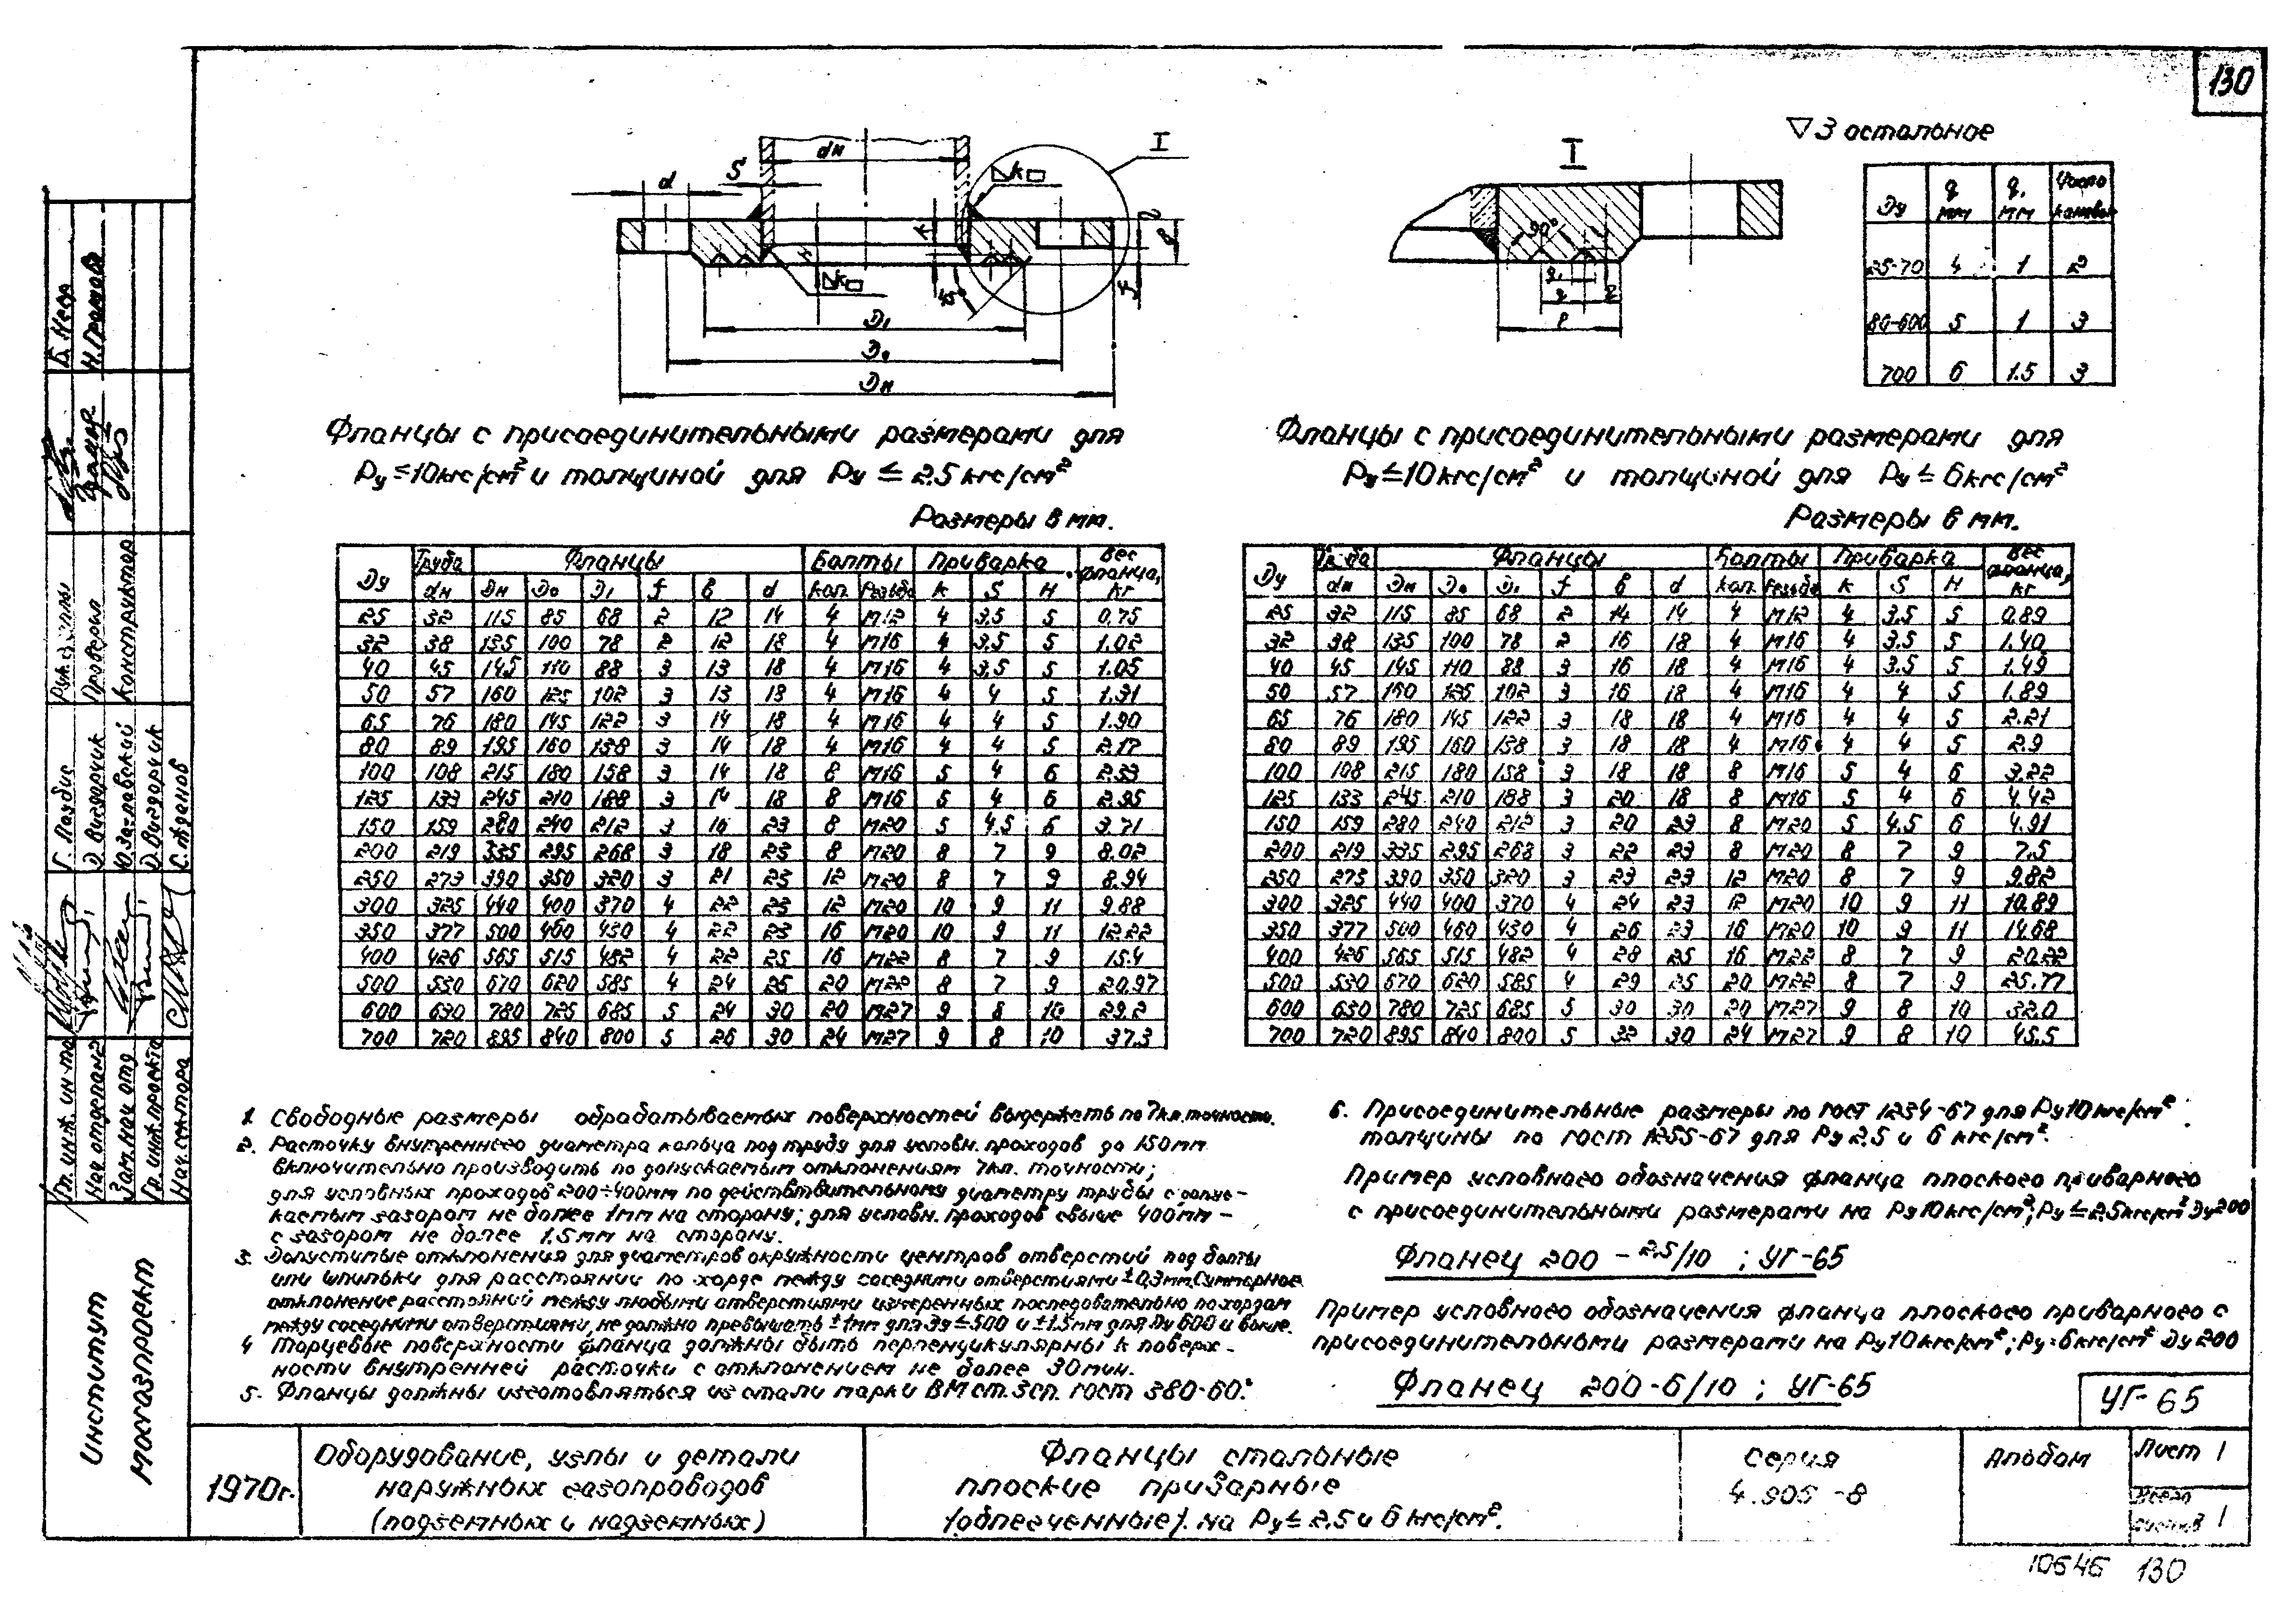 130
▽3 остальное
I
I
dн
S
d
k
k
45°
Д₁
Д₀
Дн
90°
Ду q мм q₁ мм Число канавок
25-70 4 1 2
80-600 5 1 3
700 6 1.5 3
Фланцы с присоединительными размерами для
Ру≤10кгс/см² и толщиной для Ру ≤ 2.5 кгс/см²
Размеры в мм.
Ду Труба Фланцы Болты Приварка Вес фланца, кг
dн Дн Д₀ Д₁ f b d Кол. Резьба k S H
25 32 115 85 68 2 12 14 4 М12 4 3.5 5 0.75
32 38 135 100 78 2 12 18 4 М16 4 3.5 5 1.02
40 45 145 110 88 3 13 18 4 М16 4 3.5 5 1.05
50 57 160 125 102 3 13 18 4 М16 4 4 5 1.31
65 76 180 145 122 3 14 18 4 М16 4 4 5 1.90
80 89 195 160 138 3 14 18 4 М16 4 4 5 2.17
100 108 215 180 158 3 14 18 8 М16 5 4 6 2.33
125 133 245 210 188 3 14 18 8 М16 5 4 6 2.95
150 159 280 240 212 3 16 23 8 М20 5 4.5 6 3.71
200 219 335 295 268 3 18 23 8 М20 8 7 9 8.02
250 273 390 350 320 3 21 23 12 М20 8 7 9 8.94
300 325 440 400 370 4 22 23 12 М20 10 9 11 9.88
350 377 500 460 430 4 22 23 16 М20 10 9 11 12.22
400 426 565 515 482 4 22 25 16 М22 8 7 9 15.4
500 530 670 620 585 4 24 26 20 М22 8 7 9 20.97
600 630 780 725 685 5 24 30 20 М27 9 8 10 29.2
700 720 895 840 800 5 26 30 24 М27 9 8 10 37.3
Фланцы с присоединительными размерами для
Ру≤10кгс/см² и толщиной для Ру ≤ 6кгс/см²
Размеры в мм.
Ду Труба Фланцы Болты Приварка Вес фланца, кг
dн Дн Д₀ Д₁ f b d Кол. Резьба k S H
25 32 115 85 68 2 14 14 4 М12 4 3.5 5 0.89
32 38 135 100 78 2 16 18 4 М16 4 3.5 5 1.40
40 45 145 110 88 3 16 18 4 М16 4 3.5 5 1.49
50 57 160 125 102 3 16 18 4 М16 4 4 5 1.89
65 76 180 145 122 3 18 18 4 М16 4 4 5 2.21
80 89 195 160 138 3 18 18 4 М16 4 4 5 2.9
100 108 215 180 158 3 18 18 8 М16 5 4 6 3.22
125 133 245 210 188 3 20 18 8 М16 5 4 6 4.42
150 159 280 240 212 3 20 23 8 М20 5 4.5 6 4.91
200 219 335 295 268 3 22 23 8 М20 8 7 9 7.5
250 273 390 350 320 3 23 23 12 М20 8 7 9 9.82
300 325 440 400 370 4 24 23 12 М20 10 9 11 10.89
350 377 500 460 430 4 26 23 16 М20 10 9 11 14.68
400 426 565 515 482 4 28 25 16 М22 8 7 9 20.22
500 530 670 620 585 4 29 25 20 М22 8 7 9 25.77
600 630 780 725 685 5 30 30 20 М27 9 8 10 32.0
700 720 895 840 800 5 32 30 24 М27 9 8 10 45.5
1. Свободные размеры обрабатываемых поверхностей выдержать по 7кл.точности.
2. Расточку внутреннего диаметра кольца под трубу для условн. проходов до 150мм
включительно производить по допускаемым отклонениям 7кл. точности;
для условных проходов 200÷400мм по действительному диаметру трубы с допус-
каемым зазором не более 1мм на сторону; для условн. проходов свыше 400мм -
с зазором не более 1.5мм на сторону.
3. Допустимые отклонения для диаметров окружности центров отверстий под болты
или шпильки для расстояний по хорде между соседними отверстиями ±0,3мм. Суммарное
отклонение расстояний между любыми отверстиями измеренных последовательно по хордам
между соседними отверстиями, не должно превышать ±1мм для Ду≤500 и ±1.5мм для Ду 600 и выше.
4 Торцевые поверхности фланца должны быть перпендикулярны к поверх-
ности внутренней расточки с отклонением не более 30мин.
5. Фланцы должны изготовляться из стали марки ВМст.3сп. ГОСТ 380-60.
6. Присоединительные размеры по ГОСТ 1234-67 для Ру10кгс/см²
толщины по ГОСТ 1255-67 для Ру 2,5 и 6 кгс/см².
Пример условного обозначения фланца плоского приварного
с присоединительными размерами на Ру10кгс/см²; Ру≤2,5кгс/см² Ду200
Фланец 200 - 2,5/10 ; УГ-65
Пример условного обозначения фланца плоского приварного с
присоединительными размерами на Ру10кгс/см²; Ру=6кгс/см² Ду 200
Фланец 200-6/10 ; УГ-65
УГ-65
1970г.
Оборудование, узлы и детали
наружных газопроводов
(подземных и надземных)
Фланцы стальные
плоские приварные
(облегченные). на Ру≤ 2,5 и 6 кгс/см².
Серия
4.905-8
Альбом
Лист 1
Всего
листов 1
10646 130
Институт
Мосгазпроект
Гл. инж. ин-та
Нач отдела №2
Зам. нач отд
Гл. инж. проекта
Нач. сектора
Рук. группы
Проверил
Конструктор